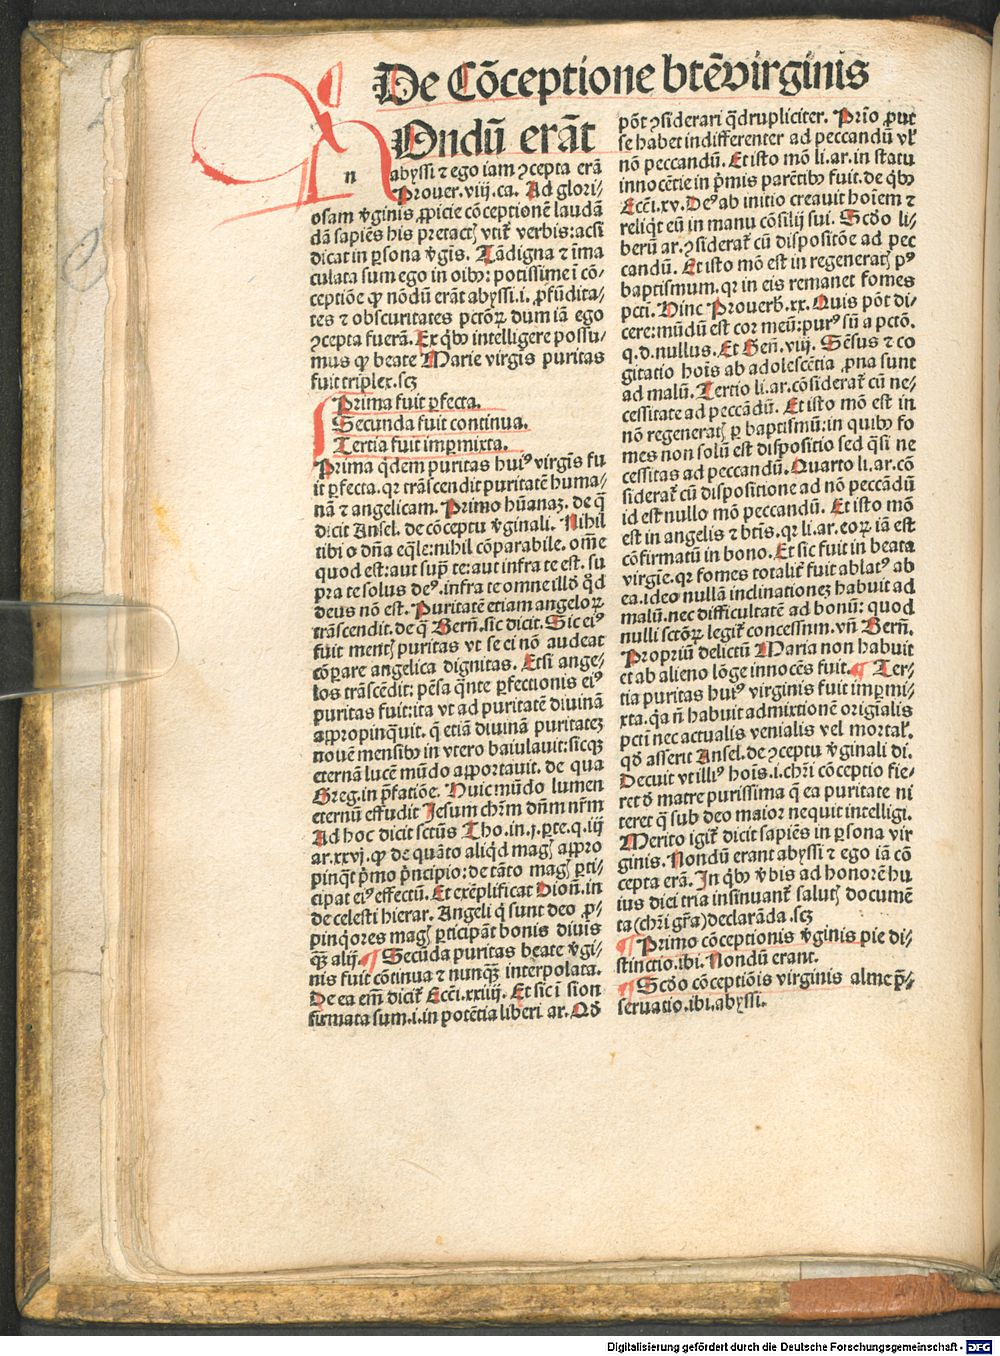 De Cōceptione btēvirginis
Ondū erāt
n
abyssi ⁊ ego iam ꝯcepta erā
Prouer.viij.ca. Ad glori-
osam v̄ginis ꝓpicie cōceptionē laudā
dā sapiēs his pretactꝭ vtit̄ verbis: acsi
dicat in ꝑsona v̄gīs. Tādigna ⁊ īma
culata sum ego in oībꝰ: potissime ī cō-
ceptiōe ꝙ nōdū erāt abyssi.i. ꝓfūdita-
tes ⁊ obscuritates pctōꝝ dum iā ego
ꝯcepta fuerā. Ex qͥbꝰ intelligere possu-
mus ꝙ beate Marie virgīs puritas
fuit triplex.scꝫ
Prima fuit ꝑfecta.
Secunda fuit continua.
Tertia fuit imꝑmixta.
Prima qͥdem puritas huiꝰ virgīs fu
it ꝑfecta. qꝛ trāscendit puritatē huma-
nā ⁊ angelicam. Primo hūanaꝫ. de q̄
dicit Ansel. de cōceptu v̄ginali. Nihil
tibi o dn̄a eq̄le: nihil cōparabile. om̄e
quod est: aut sup̄ te: aut infra te est. su
pra te solus deꝰ. infra te omne illđ qđ
deus nō est. Puritatē etiam angeloꝝ
trāscendit. de q̄ Bern̄. sic dicit. Sic eiꝰ
fuit mentꝭ puritas vt se ei nō audeat
cōpare angelica dignitas. Etsi ange-
los trāscēdit: pēsa qͣnte ꝑfectionis eiꝰ
puritas fuit: ita vt ad puritatē diuinā
appropinq̄uit. q̄ etiā diuinā puritateꝫ
nouē mensibꝰ in vtero baiulauit: sicqꝫ
eternā lucē mūdo apportauit. de qua
Greg. in p̄fatiōe. Huic mūdo lumen
eternū effudit Jesum chr̄m dn̄m nr̄m
Ad hoc dicit sctūs Tho.in.ȷ.ꝑte.q.iij
ar.xxvj. ꝙ de quāto aliqđ magꝭ appro
pinqͣt p̄mo p̄ncipio: de tāto magꝭ ꝑti-
cipat eiꝰ effectū. Et exēplificat Dion̄. in
de celesti hierar. Angeli q̄ sunt deo ꝓ-
pinqͥores magꝭ ꝑticipāt bonis diuis
qꝫ alij. ¶ Secūda puritas beate v̄gi-
nis fuit cōtinua ⁊ nunqꝫ interpolata.
De ea em̄ dicit̄ Ecc̄i.xxiiij. Et sic ī sion
firmata sum.i.in potētia liberi ar. Qđ
pōt ꝯsiderari qͣdrupliciter. Prīo ꝓut
se habet indifferenter ad peccandū vl̄
nō peccandū. Et isto mō li.ar.in statu
innocētie in p̄mis parētibꝰ fuit. de qͥbꝰ
Ecc̄i.xv. Deꝰ ab initio creauit hoīem ⁊
reliqͥt eū in manu cōsilij sui. Scđo li-
berū ar. ꝯsiderat̄ cū dispositōe ad pec
candū. Et isto mō est in regeneratꝭ pꝰ
baptismum. qꝛ in eis remanet fomes
pcti. Hinc Prouerb̄.xx. Quis pōt di-
cere: mūdū est cor meū: purꝰ sū a pctō.
q.d.nullus. Et Gen̄.viij. Sēsus ⁊ co
gitatio hoīs ab adolescētia ꝓna sunt
ad malū. Tertio li.ar.cōsiderat̄ cū ne-
cessitate ad peccādū. Et isto mō est in
nō regeneratꝭ ꝑ baptismū: in quibꝰ fo
mes non solū est dispositio sed qͣsi ne
cessitas ad peccandū. Quarto li.ar.cō
siderat̄ cū dispositione ad nō peccādū
id est nullo mō peccandū. Et isto mō
est in angelis ⁊ btīs. qꝛ li.ar.eoꝝ iā est
cōfirmatū in bono. Et sic fuit in beata
virgīe. qꝛ fomes totalit̄ fuit ablatꝰ ab
ea. ideo nullā inclinationeꝫ habuit ad
malū. nec difficultatē ad bonū: quod
nulli sctōꝝ legit̄ concessum. vn̄ Bern̄.
Propriū delictū Maria non habuit
et ab alieno lōge innocēs fuit. ¶ Ter-
tia puritas huiꝰ virginis fuit imꝑmi-
xta. qͣa n̄ habuit admixtionē origīalis
pcti nec actualis venialis vel mortal̄.
qđ asserit Ansel. de ꝯceptu v̄ginali di.
Decuit vt illiꝰ hoīs.i.chr̄i cōceptio fie-
ret đ matre purissima q̄ ea puritate ni
teret q̄ sub deo maior nequit intelligi.
Merito igit̄ dicit sapiēs in ꝑsona vir
ginis. Nondū erant abyssi ⁊ ego iā cō
cepta erā. In qͥbꝰ v̄bis ad honorē hu
ius diei tria insinuant̄ salutꝭ documē
ta (chr̄i gr̄a) declarāda.scꝫ
¶ Primo cōceptionis v̄ginis pie di-
stinctio.ibi. Nondū erant.
¶ Scđo cōceptiōis virginis alme p̄-
seruatio.ibi.abyssi.
Digitalisierung gefördert durch die Deutsche Forschungsgemeinschaft - DFG